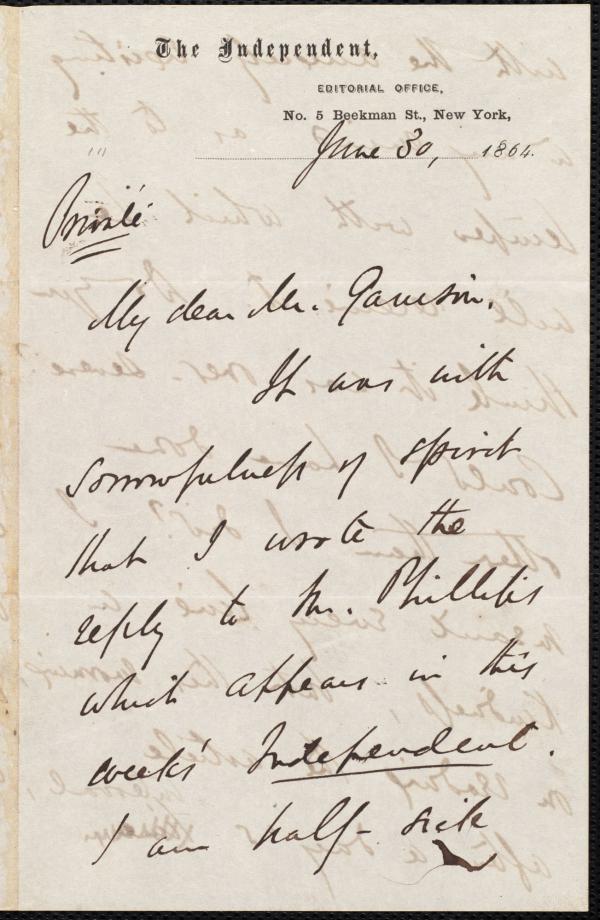 The Independent,
EDITORIAL OFFICE,
No. 5 Beekman St., New York,
June 30, 1864.
Private
My dear Mr. Garrison,
It was with
sorrowfulness of spirit
that I wrote the
reply to Mr. Phillips
which appears in this
weeks' Independent.
I am half-sick